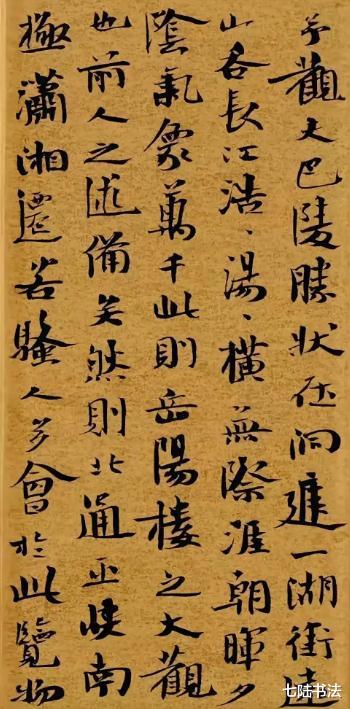 予觀夫巴陵勝狀在洞庭一湖銜遠
山吞長江浩〻湯〻橫無際涯朝暉夕
陰氣象萬千此則岳陽樓之大觀
也前人之述備矣然則北通巫峽南
極瀟湘遷客騷人多會於此覽物
七陆书法